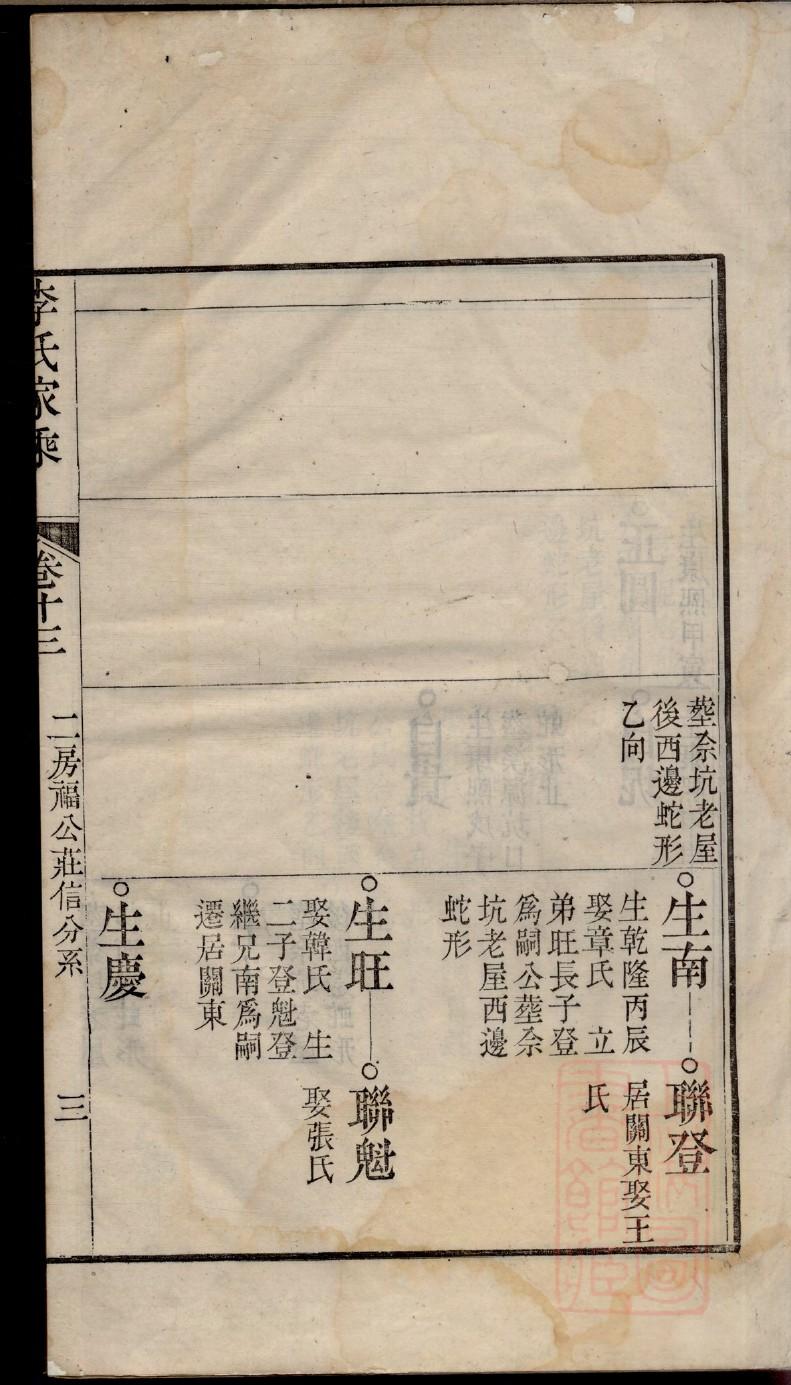 塟佘坑老屋
後西邊蛇形
乙向
生南
生乾隆丙辰
娶章氏 立
弟旺長子登
爲嗣公塟佘
坑老屋西邊
蛇形
聯登
居關東娶王
氏
生旺
娶韓氏 生
二子登魁登
繼兄南爲嗣
遷居關東
聯魁
娶張氏
生慶
李氏家乘
卷十三
二房福公莊信分系
三